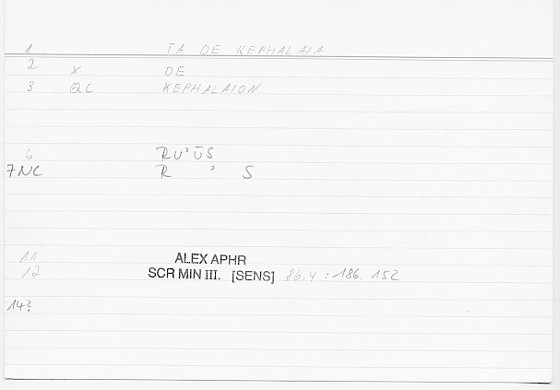 1 TA DE KEPHALAIA
2 X DE
3 QC KEPHALAION
6 RU'ŪS
7NC R ' S
11 ALEX APHR
12 SCR MIN III. [SENS] 86.4 : 186. 152
14?